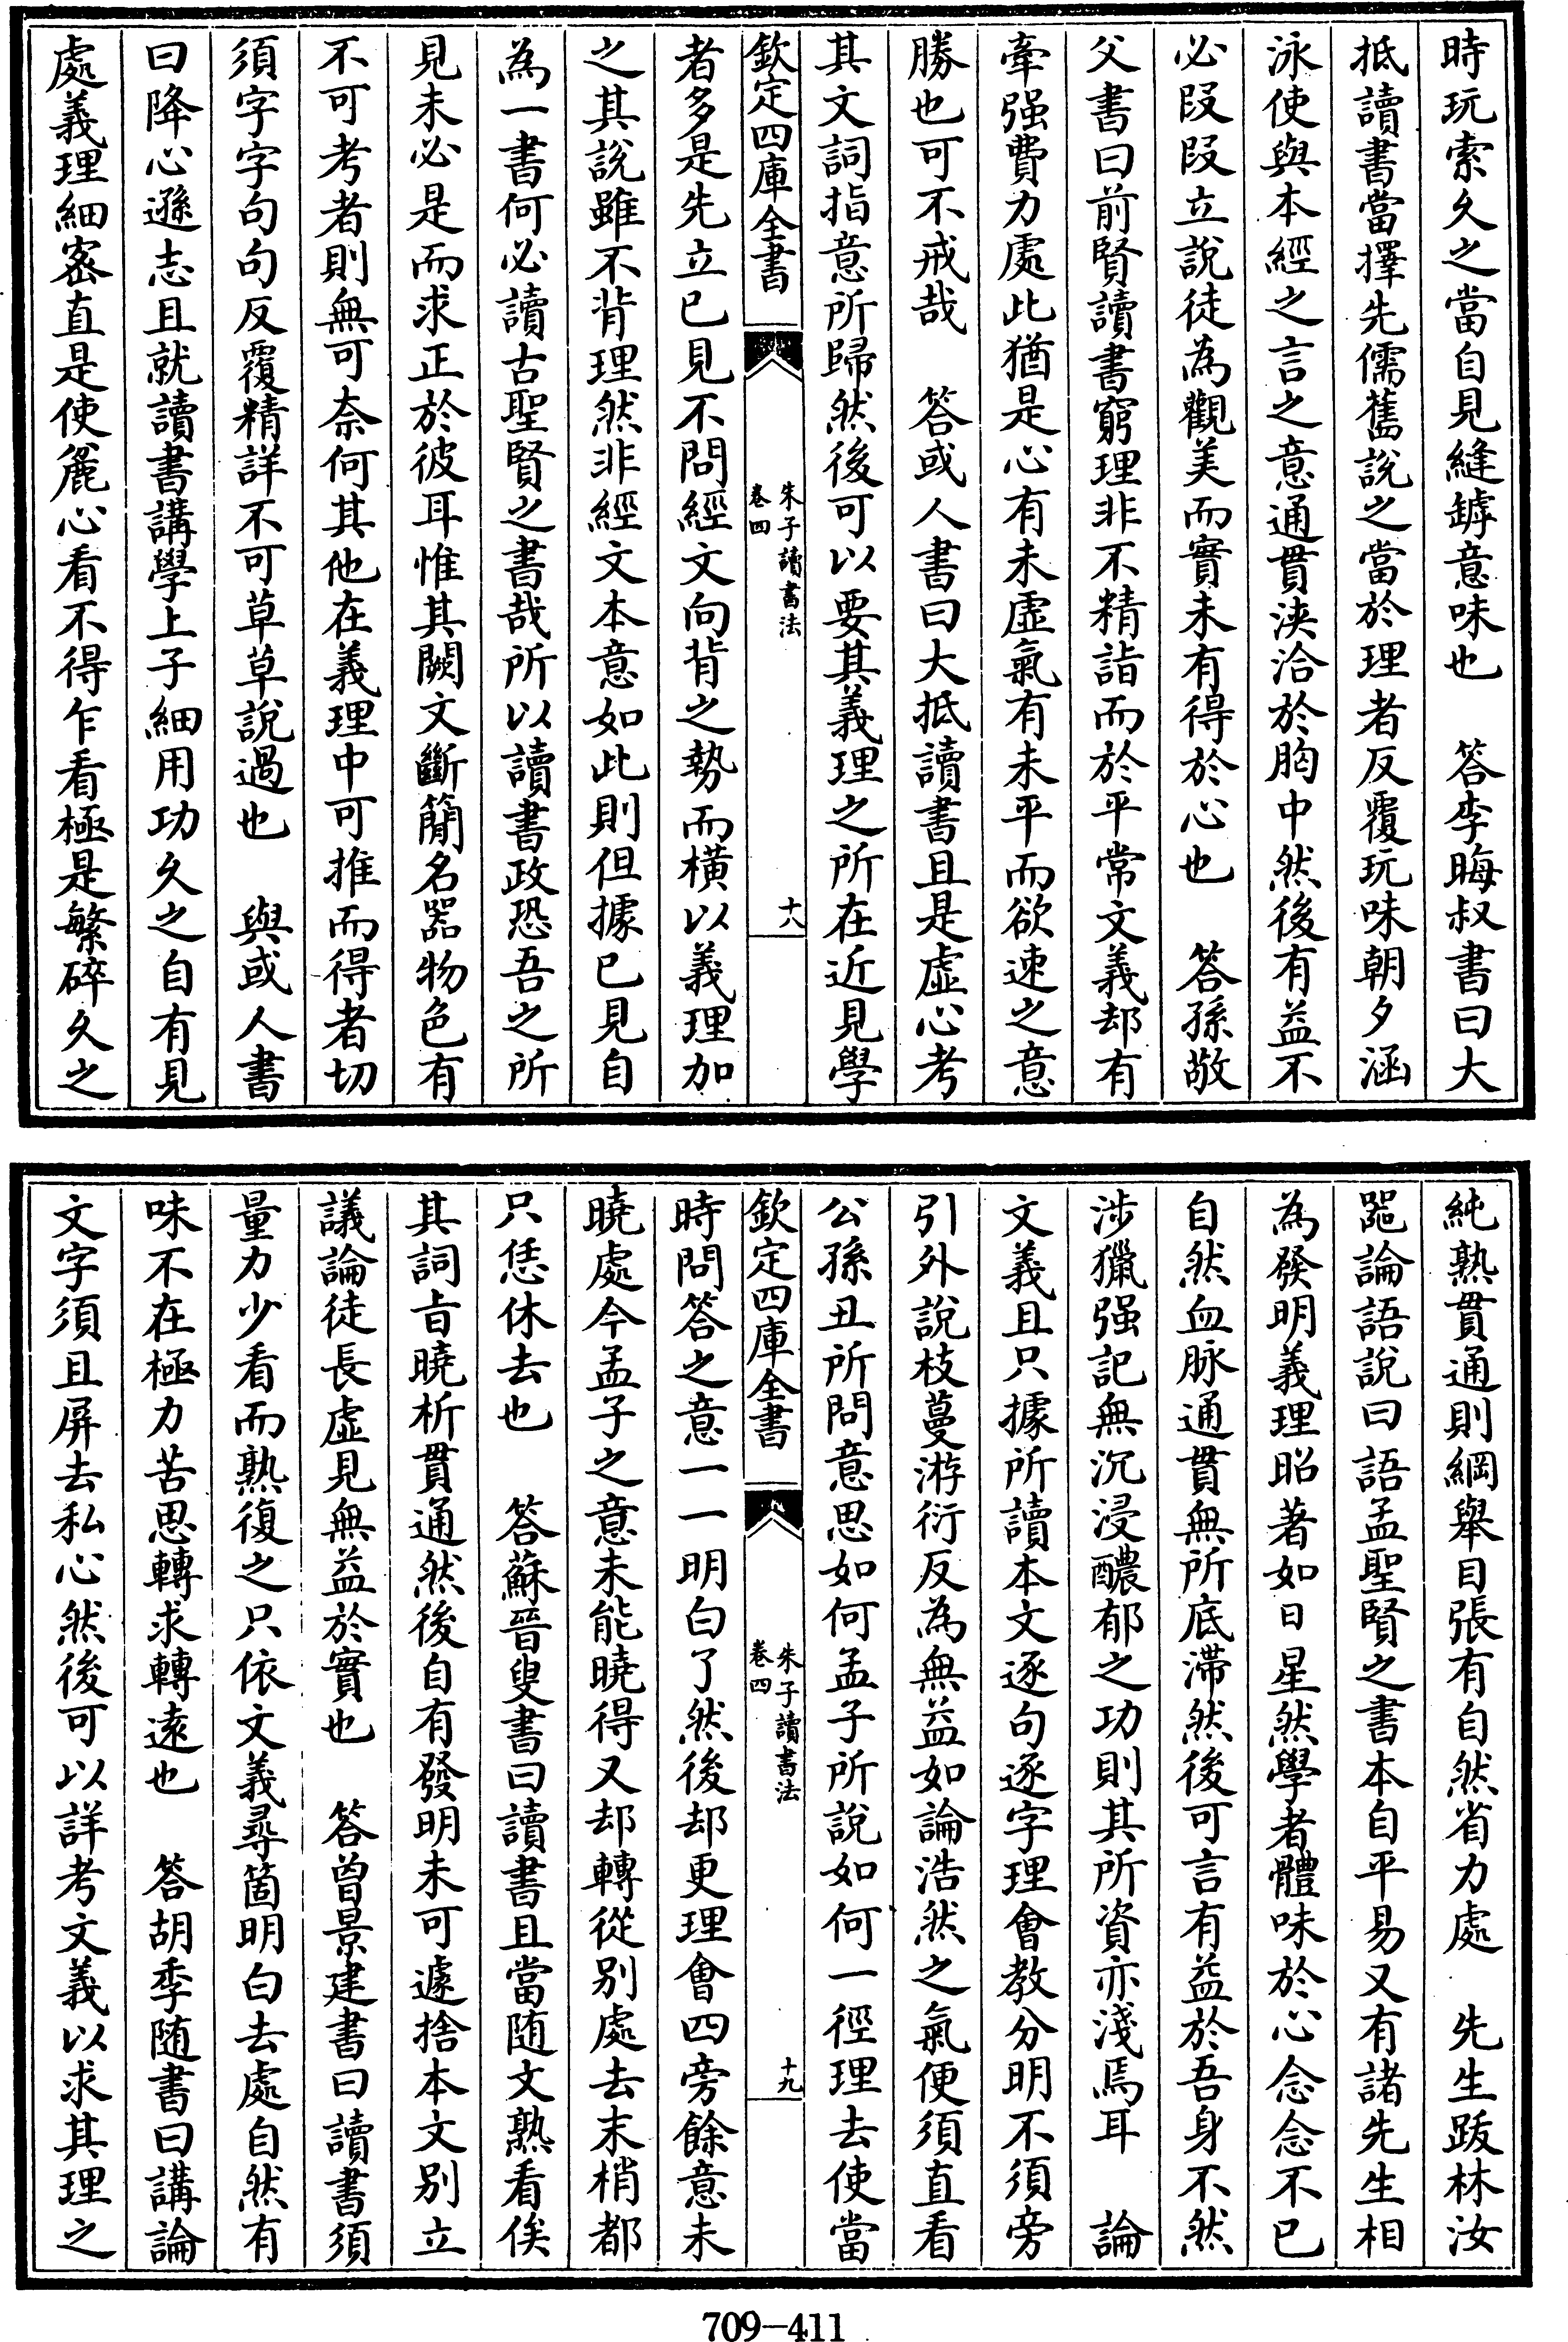 時玩索久之當自見縫罅意味也　答李晦叔書曰大
抵讀書當擇先儒舊說之當於理者反覆玩味朝夕涵
泳使與本經之言之意通貫浹洽於胸中然後有益不
必段段立說徒為觀美而實未有得於心也　答孫敬
父書曰前賢讀書窮理非不精詣而於平常文義却有
牽强費力處此猶是心有未虛氣有未平而欲速之意
勝也可不戒哉　答或人書曰大抵讀書且是虛心考
其文詞指意所歸然後可以要其義理之所在近見學
欽定四庫全書
朱子讀書法
卷四
十八
者多是先立已見不問經文向背之勢而橫以義理加
之其說雖不背理然非經文本意如此則但據已見自
為一書何必讀古聖賢之書哉所以讀書政恐吾之所
見未必是而求正於彼耳惟其闕文斷簡名器物色有
不可考者則無可奈何其他在義理中可推而得者切
須字字句句反覆精詳不可草草說過也　與或人書
曰降心遜志且就讀書講學上子細用功久之自有見
處義理細密直是使麁心看不得乍看極是繁碎久之
純熟貫通則綱舉目張有自然省力處　先生跋林汝
器論語說曰語孟聖賢之書本自平易又有諸先生相
為發明義理昭著如日星然學者體味於心念念不已
自然血脉通貫無所底滯然後可言有益於吾身不然
涉獵强記無沉浸醲郁之功則其所資亦淺焉耳　論
文義且只據所讀本文逐句逐字理會教分明不須旁
引外說枝蔓游衍反為無益如論浩然之氣便須直看
公孫丑所問意思如何孟子所說如何一徑理去使當
欽定四庫全書
朱子讀書法
卷四
十九
時問答之意一一明白了然後却更理會四旁餘意未
曉處今孟子之意未能曉得又却轉從别處去末梢都
只恁休去也　答蘇晉叟書曰讀書且當随文熟看俟
其詞㫖曉析貫通然後自有發明未可遽捨本文别立
議論徒長虛見無益於實也　答曽景建書曰讀書須
量力少看而熟復之只依文義尋箇明白去處自然有
味不在極力苦思轉求轉遠也　答胡季随書曰講論
文字須且屏去私心然後可以詳考文義以求其理之
709-411